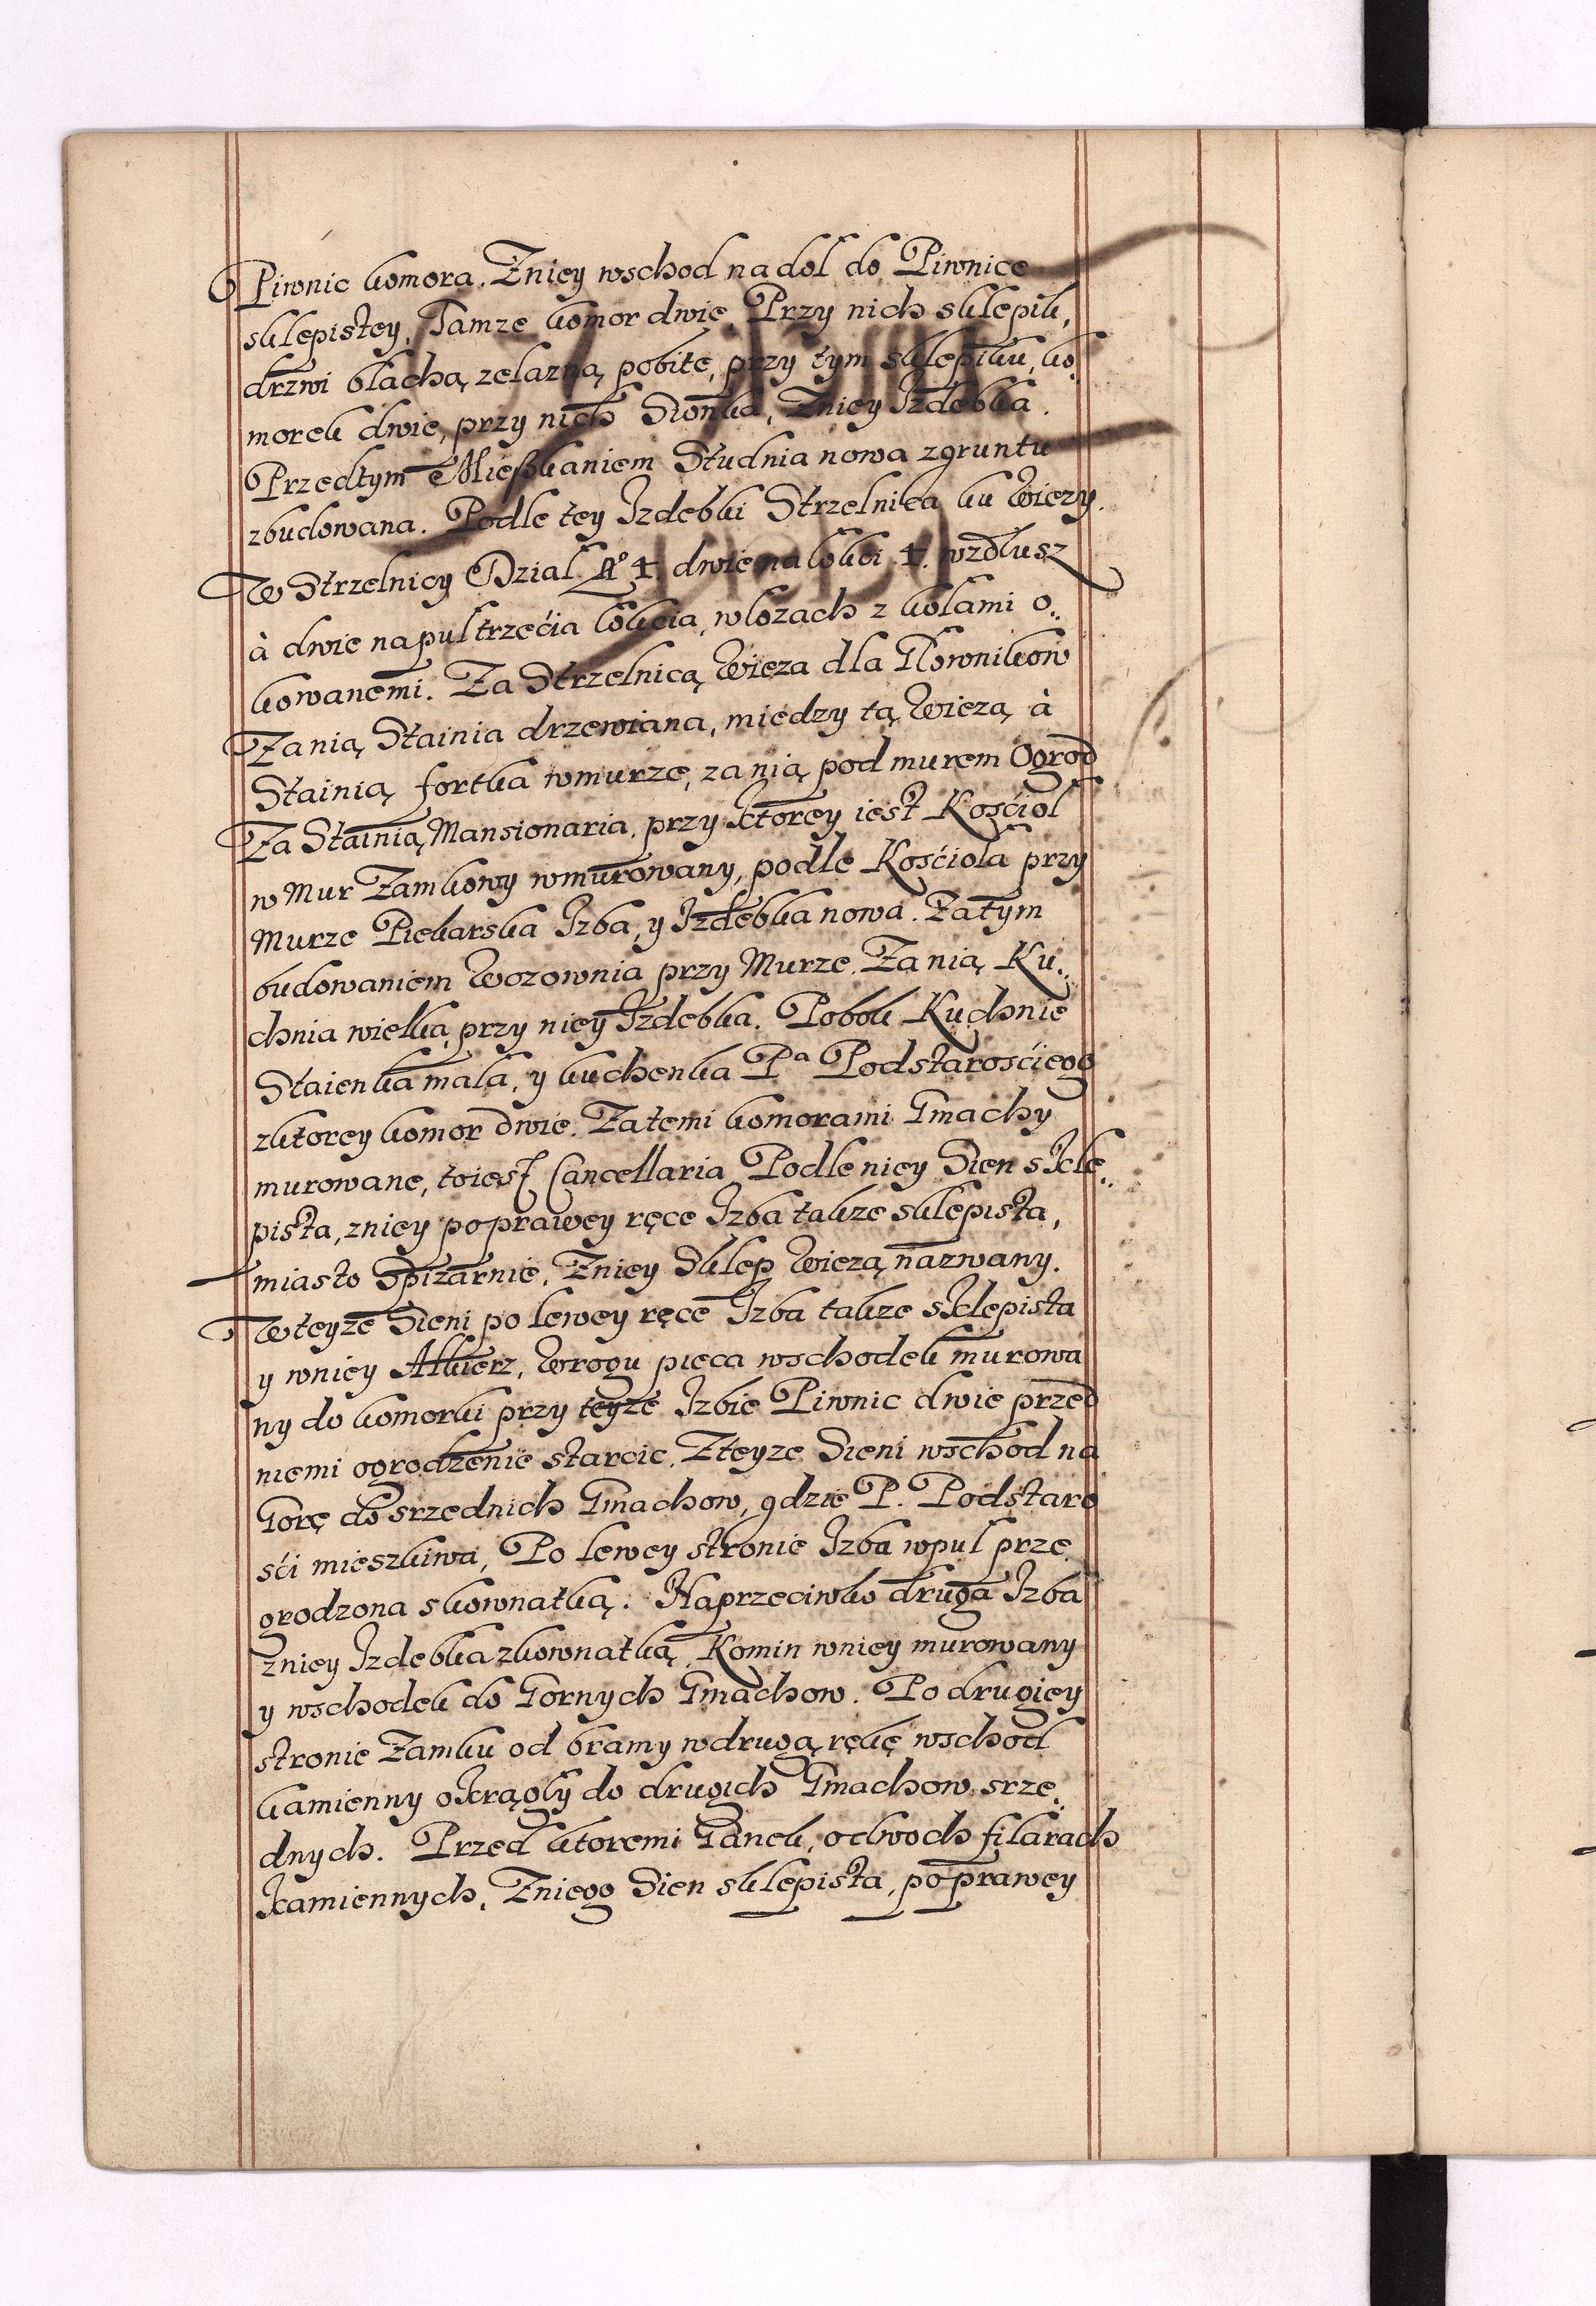 Piwnic komora. Zniey wschod na dol do Piwnice
sklepistey, Tamze komor dwie, Przy nich sklepik,
drzwi blachą zelazną pobite, przy tym sklepiku, ko,
morek dwie, przy nich Sionka, Zniey Izdebka.
Przedtym Mieszkaniem Studnia nowa zgruntu
zbudowana. Podle tey Izdebki Strzelnica ku Wiezy.
W Strzelnicy Dzial No 4. dwie na lokci 4. wzdłusz
à dwie na pul trzećia lokcia, w lozach z kolami o..
kowanemi. Za Strzelnicą Wieza dla Głownikow
Za nią Stainia drzewiana, miedzy tą Wiezą à
Stainią fortka w murze, za nią pod murem Ogrod
Za Stainią Mansionaria, przy ktorey iest Kośćiol
w Mur Zamkowy wmurowany, podle Kośćiola przy
Murze Piekarska Izba, y Izdebka nowa. Zatym
budowaniem Wozownia przy Murze. Za nią Ku..
chnia wielka, przy niey Izdebka. Pobok Kuchnie
Staienka mala, y kuchenka Pa Podstarośćiego
zktorey komor dwie. Zatemi komorami Gmachy
murowane, toiest Cancellaria Podle niey Sien skle..
pista, zniey po prawey ręce Izba takze sklepista,
miasto Spizarnie. Zniey Sklep Wiezą nazwany.
W teyze Sieni po lewey ręce Izba takze sklepista
y wniey Alkierz, Wrogu pieca wschodek murowa
ny do komorki przy teyze Izbie Piwnic dwie przed
niemi ogrodzenie starcic. Zteyze Sieni wschod na
Gorę do srzednich Gmachow, gdzie P. Podstaro
śći mieszkiwa, Po lewey stronie Izba wpul prze
grodzona skownatką. Naprzeciwko druga Izba
zniey Izdebka zkownatką, Komin wniey murowany
y wschodek do Gornych Gmachow. Po drugiey
stronie Zamku od bramy wdrugą rękę wschod
kamienny okrągły do drugich Gmachow srze..
dnych. Przed ktoremi Ganek, o dwoch filarach
kamiennych, Zniego Sien sklepista, po prawey